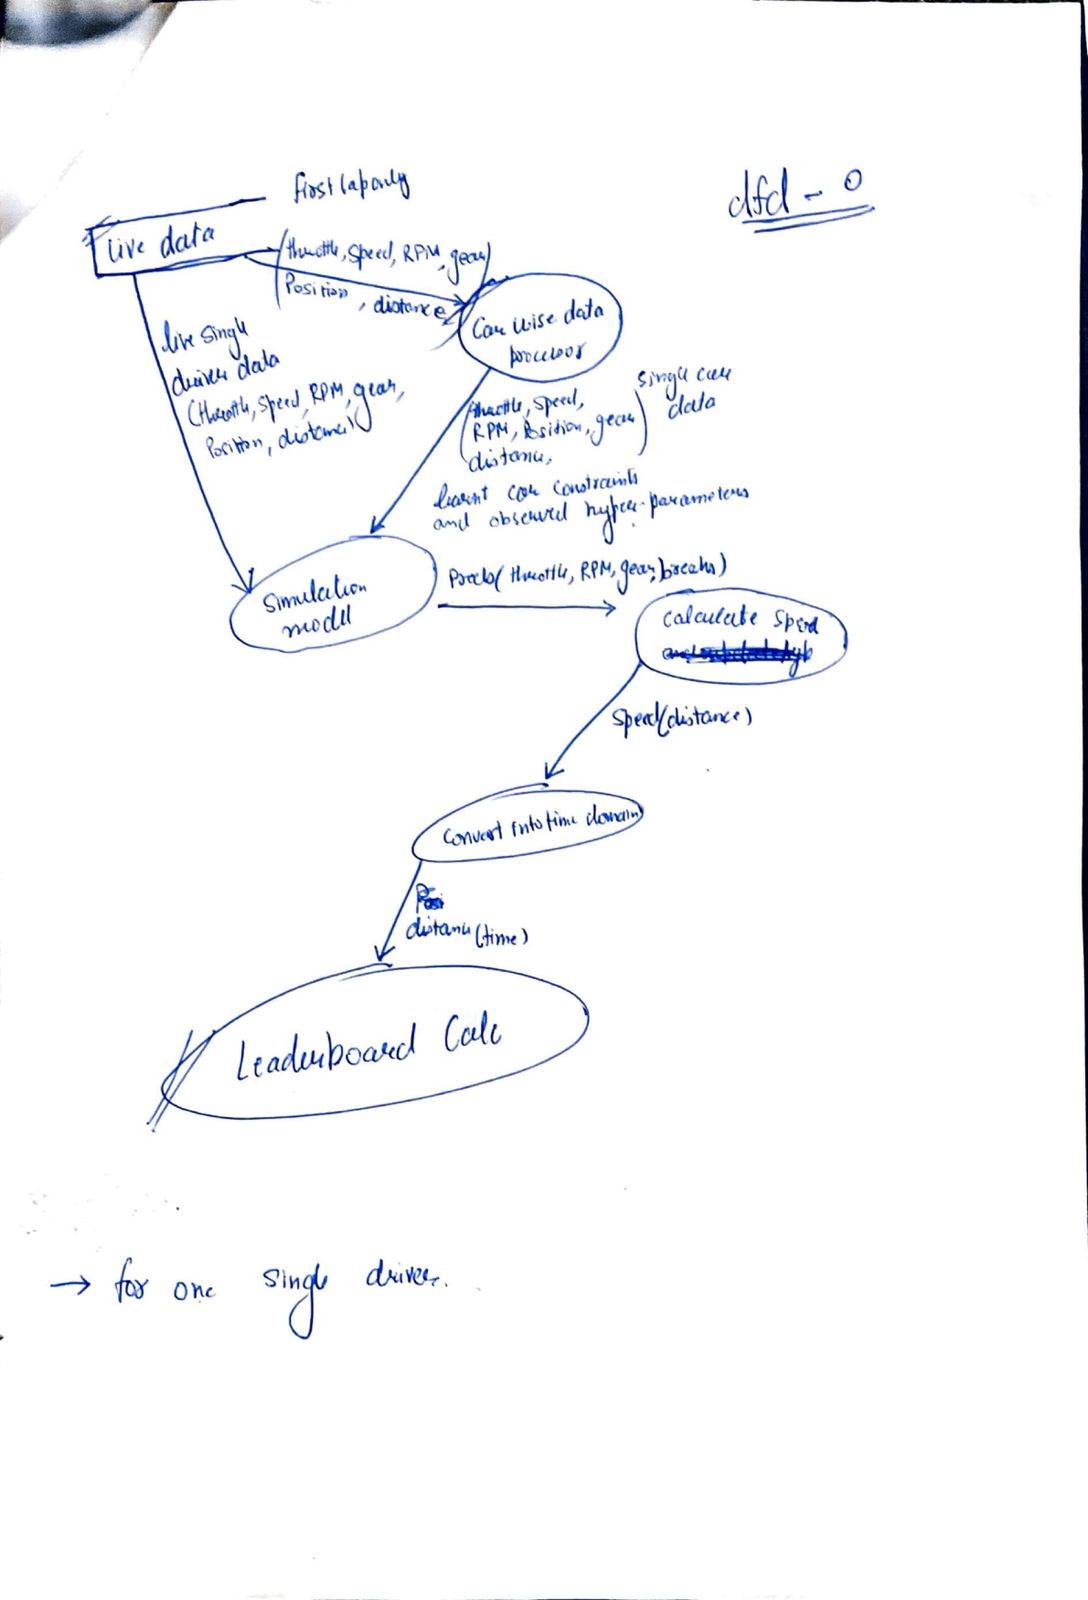 First lap only
dfd - 0
Live data
(throttle, Speed, RPM, gear)
Position, distance
Car wise data
processor
live single
driver data
(throttle, Speed, RPM, gear,
Position, distance)
single car
data
(throttle, speed,
RPM, Position, gear)
distance,
learnt car constraints
and observed hyper-parameters
Simulation
model
(throttle, RPM, gear, breaks)
Calculate Speed
Speed(distance)
Convert into time domain
distance(time)
Leaderboard Calc
→ for one single driver.